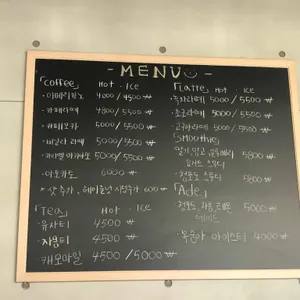 - MENU -
「Coffee」 Hot · Ice
· 아메리카노 4000/4500 ₩
· 카페라떼 4800/5500 ₩
· 카페모카 5000/5500 ₩
· 바닐라 라떼 5000/5500 ₩
· 카라멜 마끼아또 5000/5500 ₩
· 아포가토 6000 ₩
* 샷 추가, 헤이즐넛 시럽추가 600 ₩ *
「Tea」 Hot · Ice
· 유자티 4500 ₩
· 자몽티 4500 ₩
· 캐모마일 4500/5000 ₩
「Latte」 Hot · Ice
· 녹차라떼 5000/5500 ₩
· 초코라떼 5000/5500 ₩
· 고구마라떼 5000/5500 ₩
「Smoothie」
· 딸기
요거트 스무디 5800 ₩
· 청포도 스무디 5800 ₩
「Ade」
· 청포도, 자몽, 레몬 5000 ₩
에이드
· 복숭아 아이스티 4000 ₩